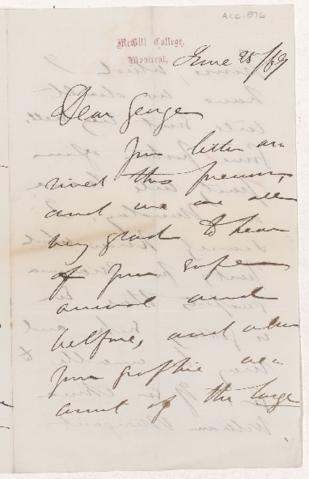 ACC-876
McGill College,
Montreal,
June 25/69
Dear George
Your letter ar-
rived this
and we are all
very glad to hear
of your safe
arrival and
welfare, and also
your graphic ac-
count of the large